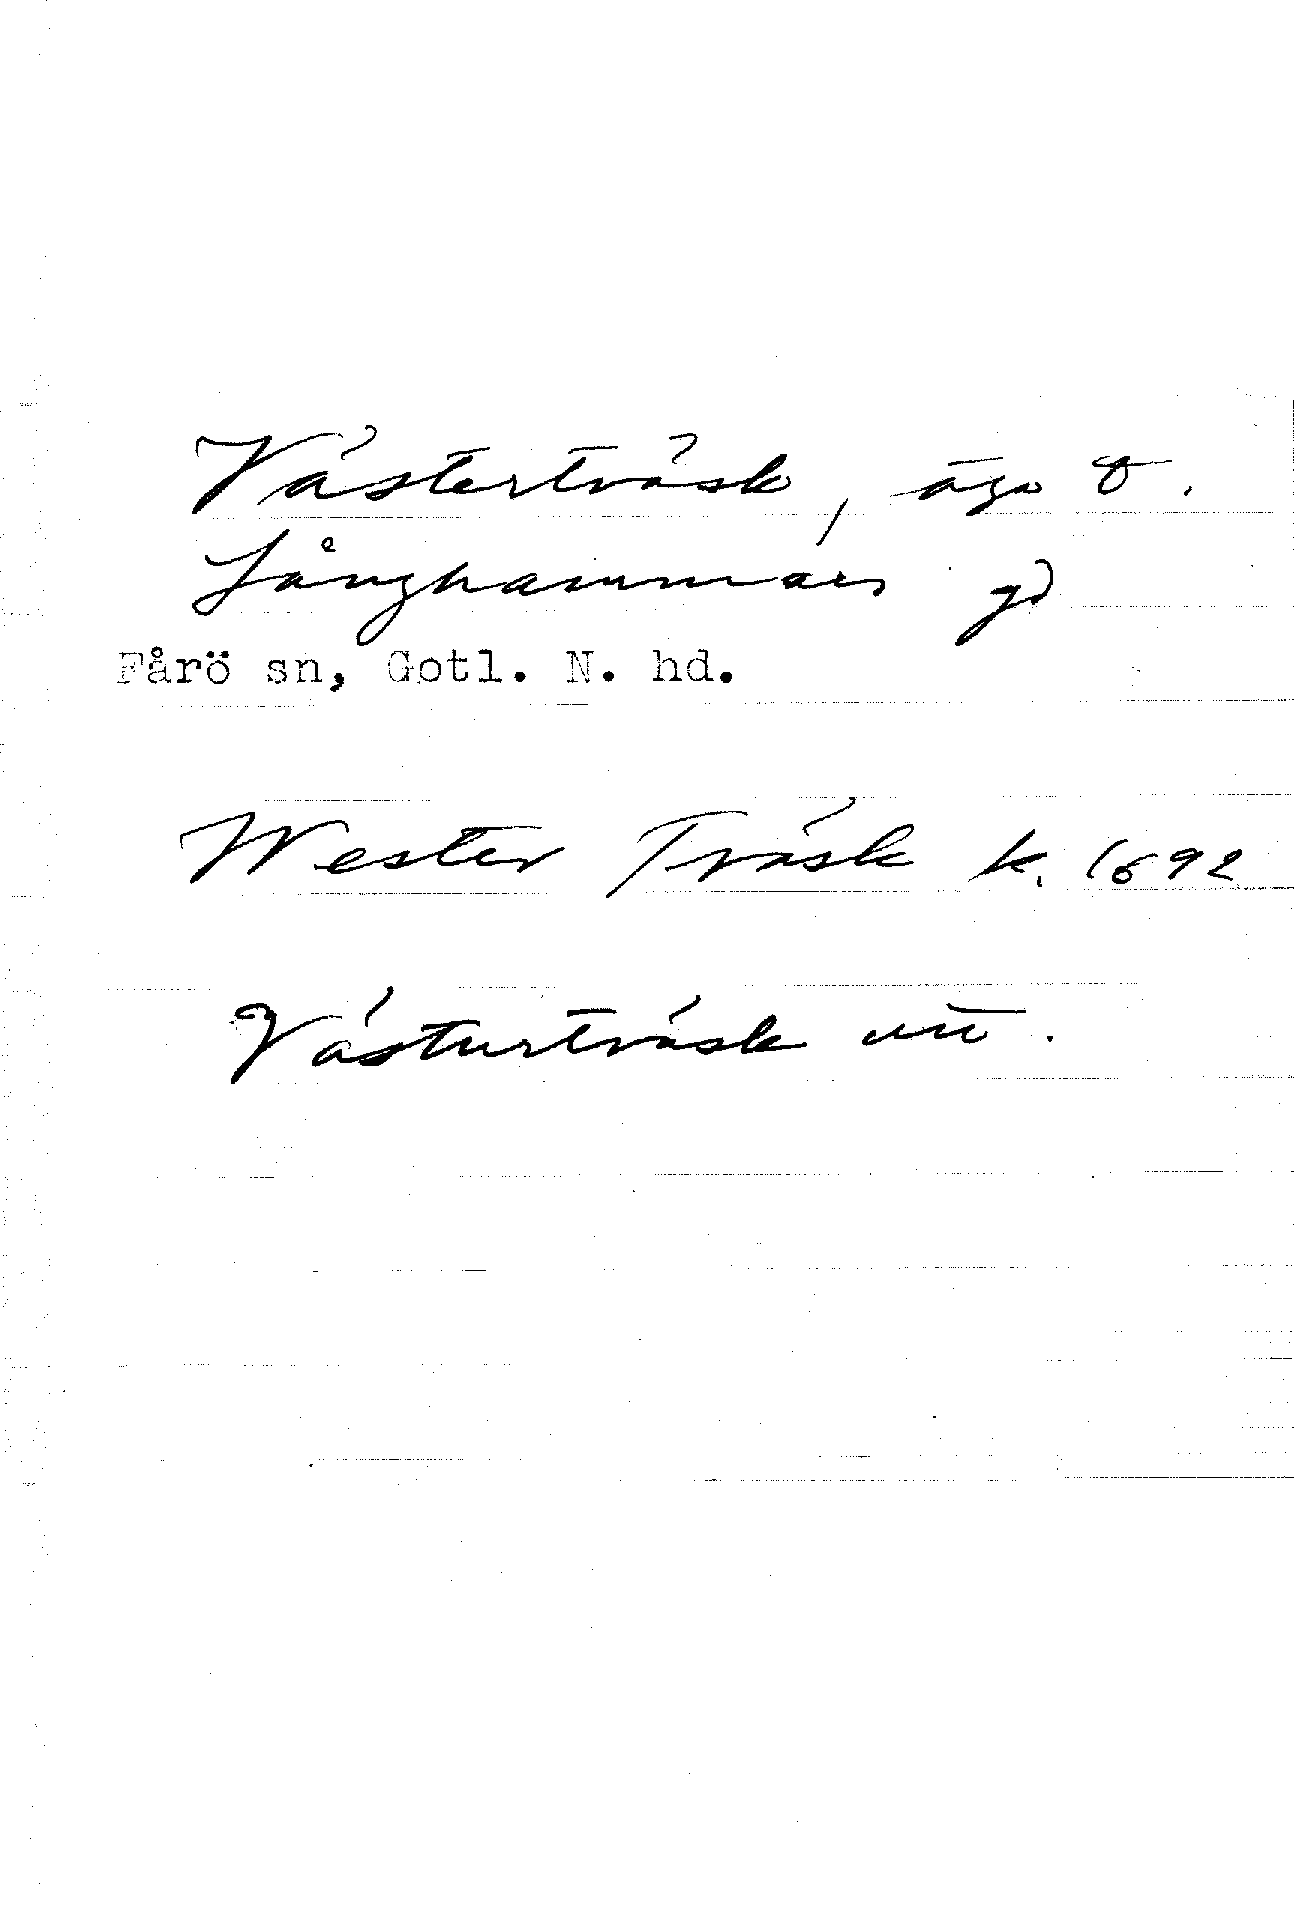 Västerträsk, äga
Långhammars gd
Fårö sn, Gotl. N. hd.
Wester Träsk k. 1692
Västurträsk utt.